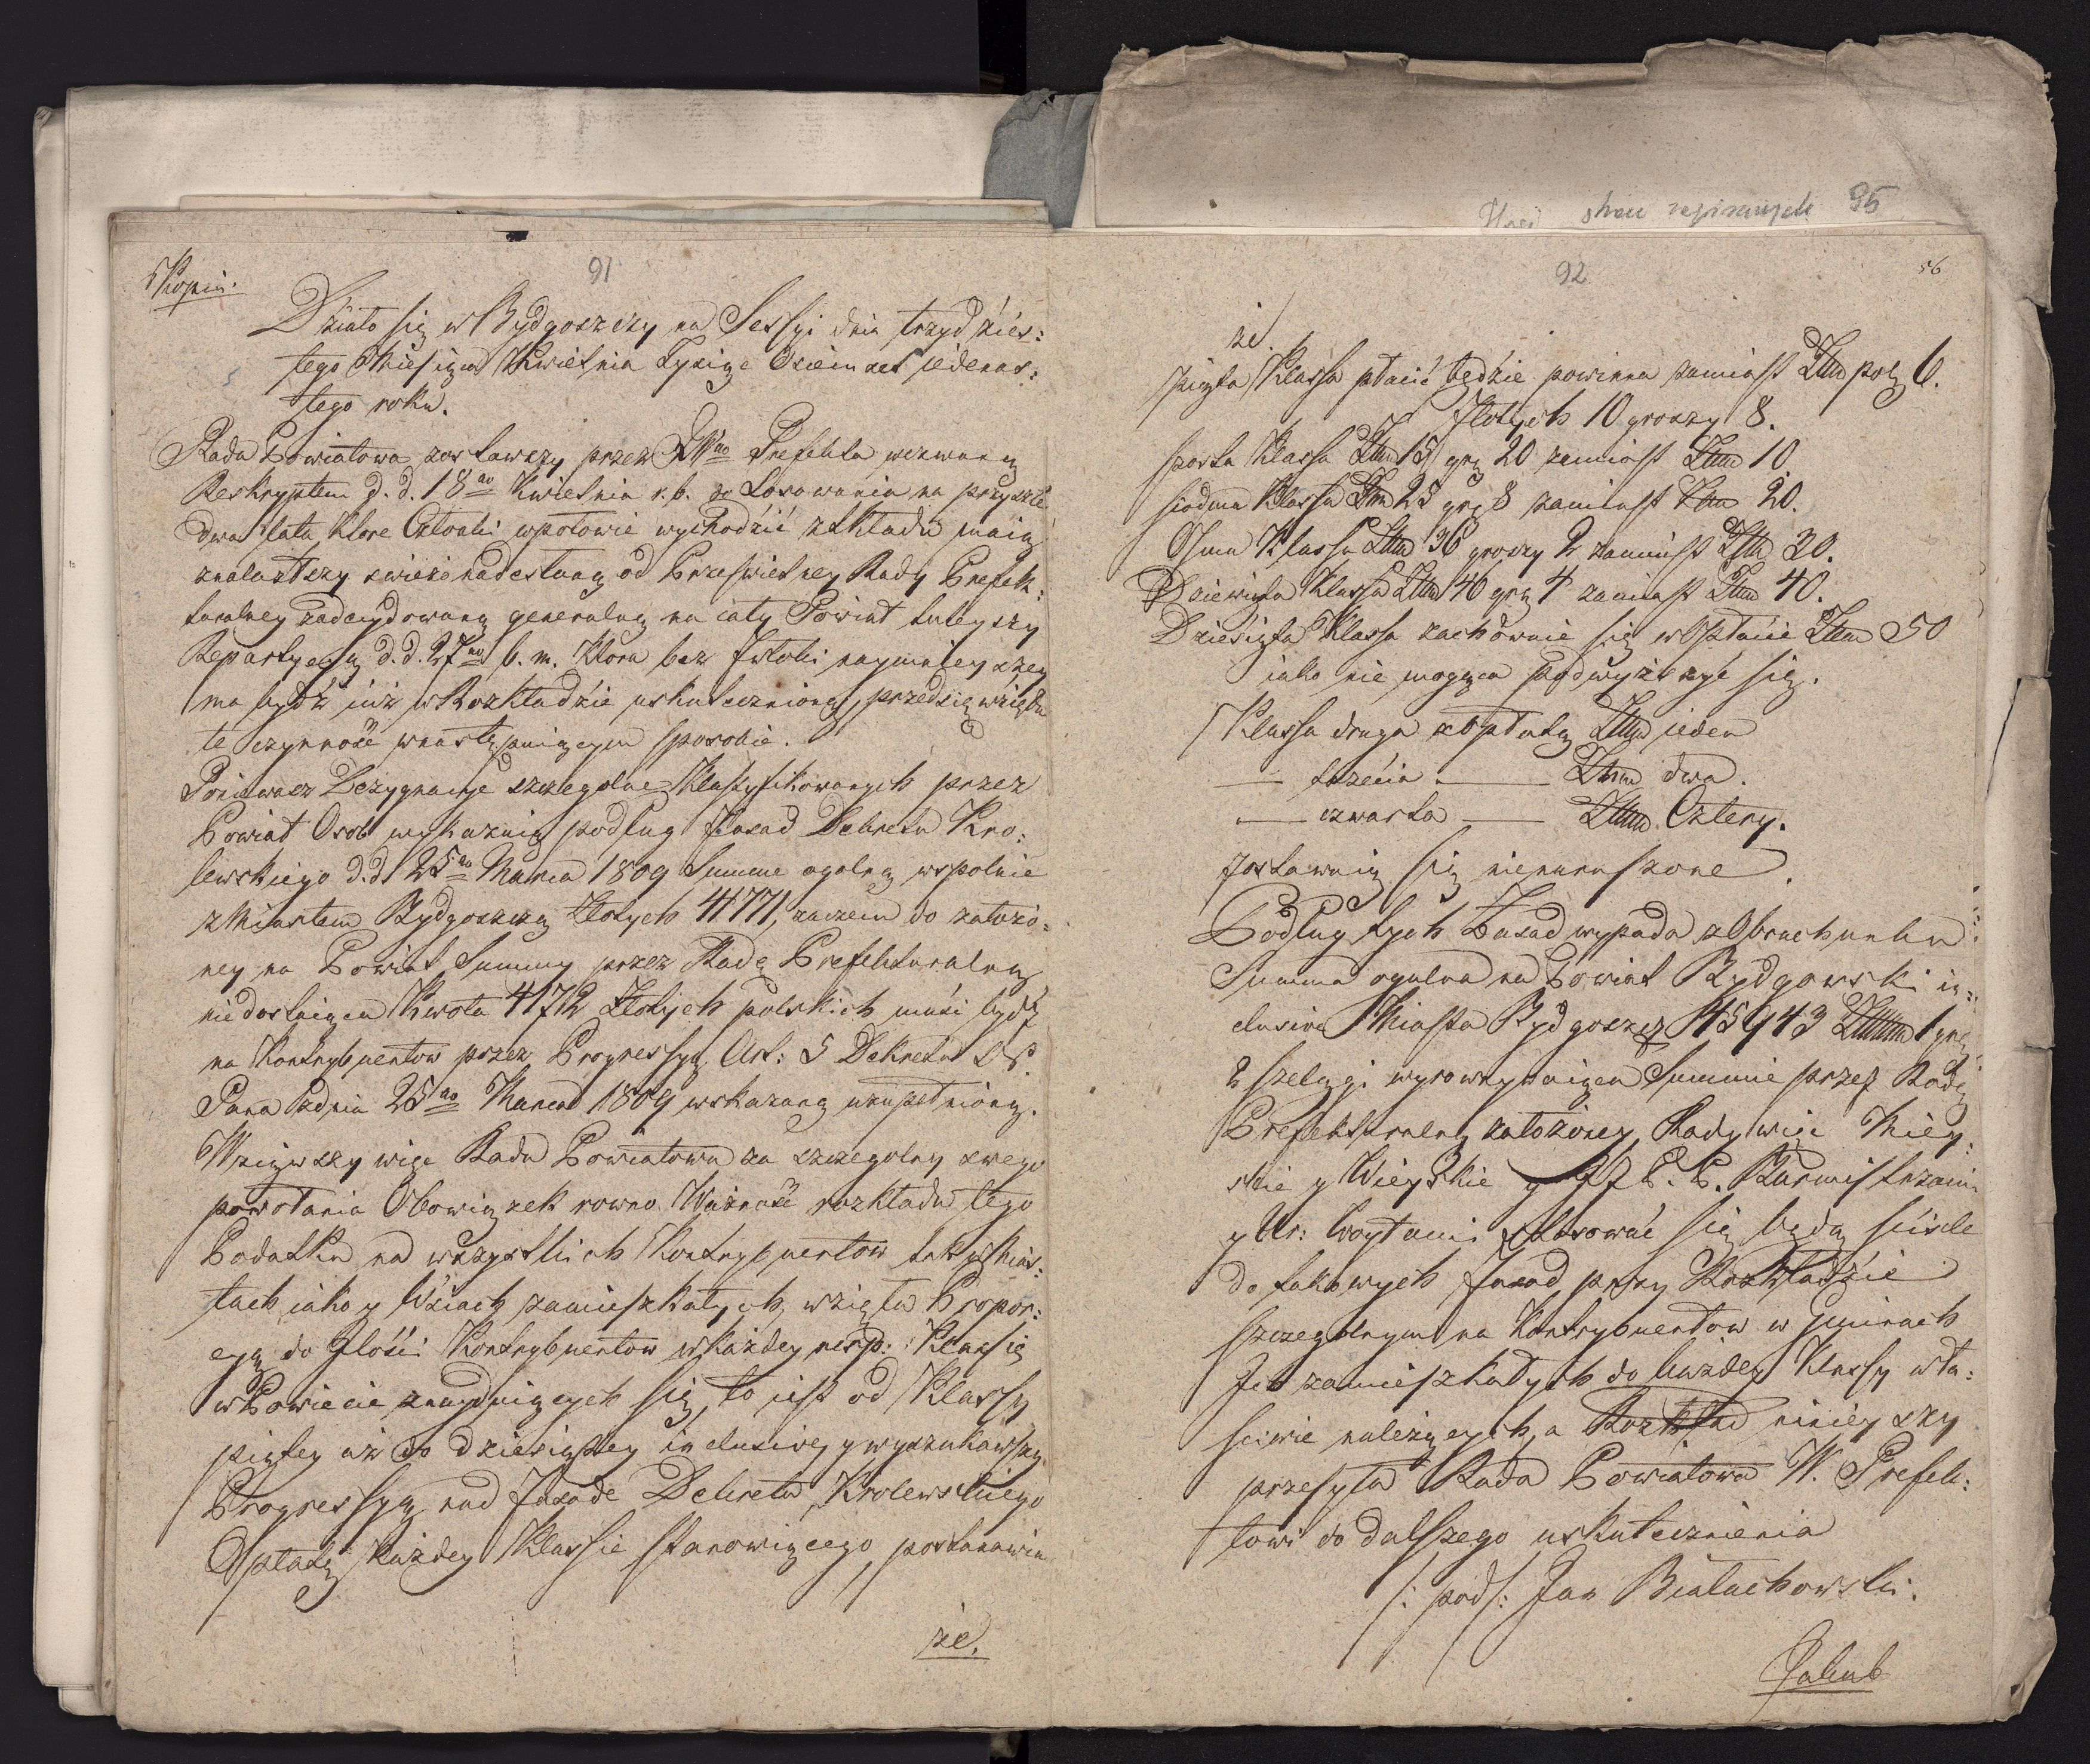 91
Kopia.
Działo się w Bydgoszczy na Sessyi dnia trzydzies:
tego Miesiąca Kwietnia Tysiąc Osiemset jedenas:
tego roku.
Rada Powiatowa zostawszy przez JWgo Prefekta wezwaną
Reskryptem d. d. 18go Kwietnia r. b. do Losowania na przyszłe
dwa lata, ktore Członki wpołowie wychodzić z kładu maią
znalazłszy świeżo nadesłaną od Prześwietney Rady Prefek:
turalney zadecydowaną generalną na cały Powiat tuteyszy
Repartycyą d. d. 27go b. m. ktora bez zwłoki naymnieyszey
ma bydź iuż w Rozkładzie uskuteczniona, przedsięwzięła
te czynność wnastępuiącym sposobie.
Poniewasz Dezygnacye szczegolne Klassyfikowanych przez
Powiat Osob wykazuią podług Zasad Dekretu Kro:
lewskiego d. d. 25go Marca 1809 Summe ogolną wspolnie
z Miastem Bydgoszczą Złotych 41771, zaczem do założo:
ney na Powiat Summy przez Radę Prefekturalną
niedostaiąca Kwota 4172 Złotych polskich musi bydź
na Kontrybuentow przez Progressyą Art: 5 Dekretu N.
Pana z dnia 25go Marca 1809 wskazaną uzupełnioną.
Wziąwszy więc Rada Powiatowa za szczegolny swego
powołania Obowiązek rowno Ważność rozkładu tego
Podatku na wszystkich Kontrybuentow tak w Mias:
tach iako y Wsiach zamieszkałych, wzięła Propor:
cyą do Ilości Kontrybuentow w każdey resp: Klassie
w Powiecie znayduiących się, to iest od Klassy
piątey aż do dziesiątey inclusive, y wyszukawszy
Progressyą nad Zasade Dekretu Krolewskiego
Opłatę każdey Klassie stanowiącego, postanawia
że.
95
92
56
że.
piąta Klassa płacić będzie powinna zamiast Złtt pol: 6.
Złotych 10 groszy 8.
szosta Klassa Złtt 15 grg 20 zamiast Złtt 10.
siodma Klassa Złtt 25 grg 8 zamiast Złtt 20.
Osma Klassa Złtt 36 groszy 2 zamiast Złtt 30.
Dziewiąta Klassa Złtt 46 grg 4 zamiast Złtt 40.
Dziesiąta Klassa zachowuie się w Opłacie Złtt 50
iako nie mogąca podwyższyć się.
Klassa druga z opłatą Złtt jeden
— trzecia — Złtt dwa.
— czwarta — Złtt Cztery.
zostawuią się nienaruszone.
Podług tych Zasad wypada z Obrachunku
Summa ogulna na Powiat Bydgowski in:
clusive Miasta Bydgoszczy 45943 Złtt 1 grg
2 szelągi wyrownywaiąca Summie przez Radę
Prefekturalną założoney Rady więc Miey:
skie y Wieyskie y JJ. P. P. Burmistrzami
y Ur: Woytami stosować się będą scisle
do takowych Zasad przy Rozkładzie
szczegolnym na Kontrybuentow w Gminach
Ich zamieszkałych do każdey Klassy wła:
sciwie należących, a Rozkład ninieyszy
przesyła Rada Powiatowa W. Prefek:
towi do dalszego uskutecznienia
/: pod /: Jan Białachowski.
Jakub